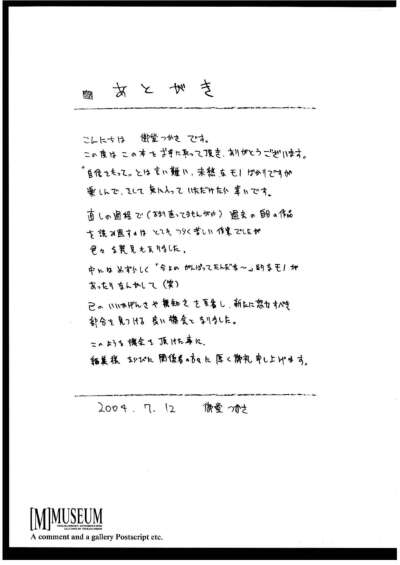 あとがき
こんにちは 衛藤つかさ です。
この度は この本を お手にとって頂き、ありがとうございます。
"自信をもって。"とは言い難い、未熟なモノばかりですが
楽しんで、そして 気に入って いただけたら 幸いです。
直しの過程で（あまり直ってませんが）過去の 自分の作品
を読み返すのは とても つらく苦しい 作業でしたが
色々な発見もありました。
中には めずらしく「今より がんばってたんだな〜」的なモノが
あったりなんかして（笑）
己の いいかげんさや 無知さを 反省し、新たに 努力すべき
部分を見つける 良い機会となりました。
このような 機会を 頂けた事に、
編集様 ならびに 関係者の方々に 厚く御礼 申し上げます。
2004. 7. 12 つかさ
[M]MUSEUM
A comment and a gallery Postscript etc.